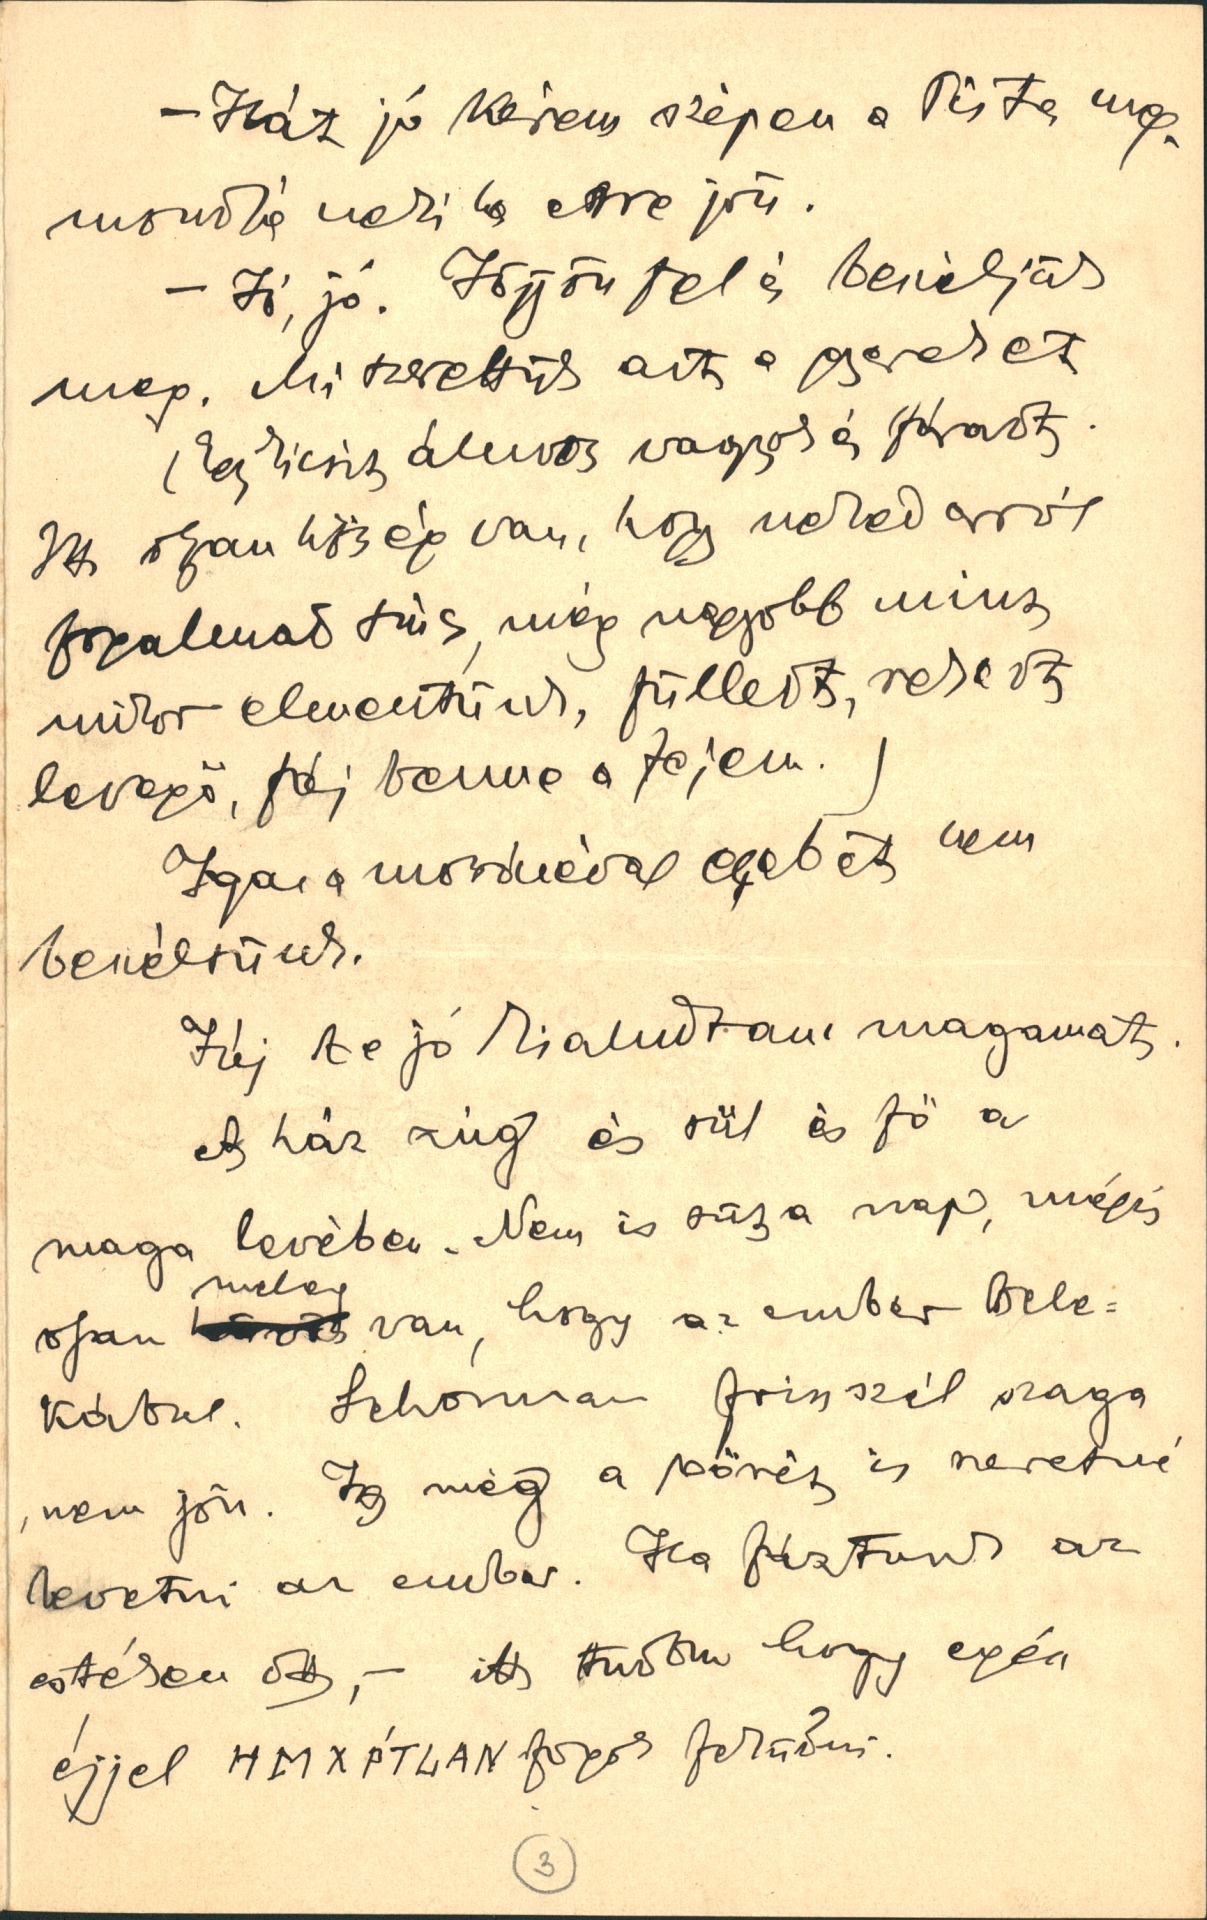 – Hát jó kérem szépen a Pista meg-
mondja neki ha erre jön.
– Jó, jó. Jöjjön fel és beszéljük
meg. Mi szerettük azt a gyereket
(Egy kicsit álmos vagyok és fáradt.
Itt olyan hőség van, hogy neked arról
fogalmad sincs, még nagyobb mint
mikor elmentünk, fülledt, rekedt
levegő, fáj benne a fejem.)
Igaz a mosónéval egyebet nem
beszéltünk.
Háj de jó kialudtam magamat.
A ház zúg és sül és fő a
maga levében. Nem is süt a nap, mégis
olyan meleg van, hogy az ember bele=
kábul. Sehonnan friss szél szaga
nem jön. Így még a bőrét is szeretné
levetni az ember. Ha fáztunk az
estéken ott, – itt tudom hogy egész
éjjel fogok feküdni.
3